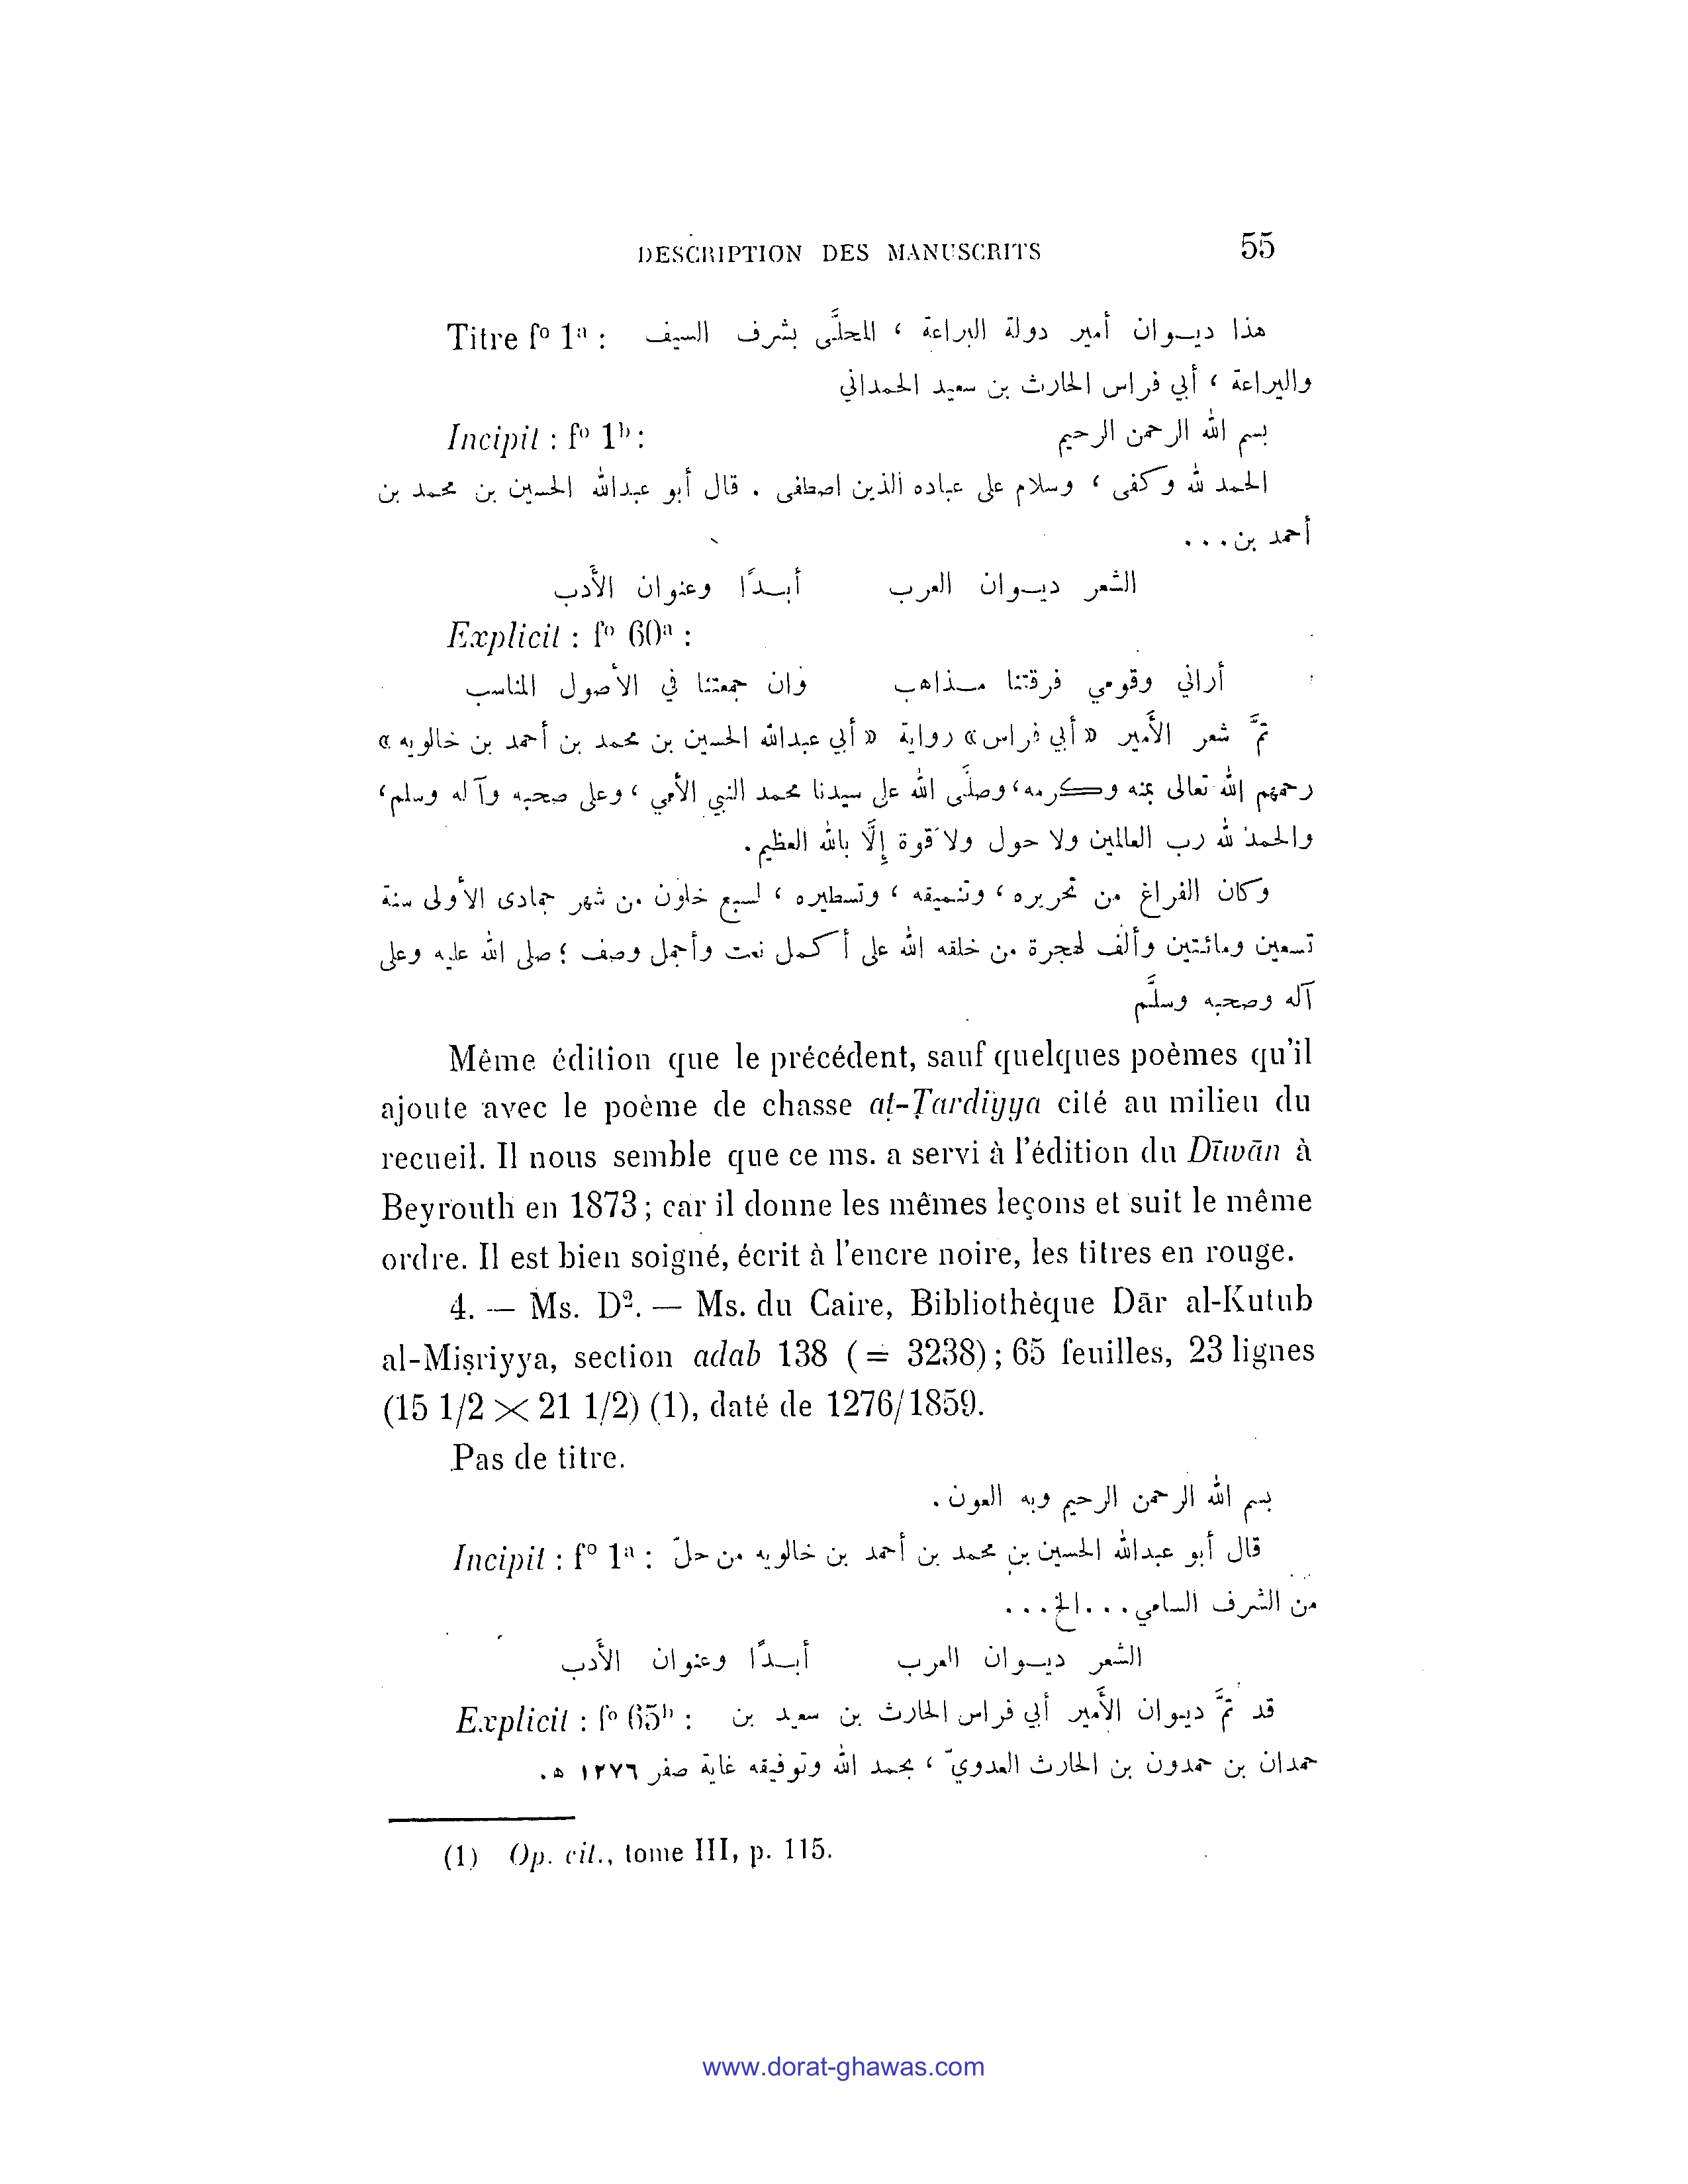 DESCRIPTION DES MANUSCRITS 55
Titre fº 1ª : هذا ديـوان أمير دولة البراعة ، المحلَّى بشرف السيف
واليراعة ، أبي فراس الحارث بن سعيد الحمداني
Incipit : fº 1ᵇ : بسم الله الرحمن الرحيم
الحمد لله وكفى ، وسلام على عباده الذين اصطفى . قال أبو عبدالله الحسين بن محمد بن
أحمد بن...
الشعر ديـوان العرب أبـدًا وعنوان الأَدب
Explicit : fº 60ª :
أراني وقومي فرقتنا مـذاهب وان جمعتنا في الأصول المناسب
تمَّ شعر الأَمير «أبي فراس» رواية «أبي عبدالله الحسين بن محمد بن أحمد بن خالويه»
رحمهم الله تعالى بمنه وكرمه، وصلَّى الله على سيدنا محمد النبي الأمي ، وعلى صحبه وآله وسلم،
والحمد لله رب العالمين ولا حول ولا قوة إِلَّا بالله العظيم.
وكان الفراغ من تحريره ، وتنميقه ، وتسطيره ، لسبع خلون من شهر جمادى الأولى سنة
تسعين ومائتين وألف لهجرة من خلقه الله على أكمل نعت وأجمل وصف ؛ صلى الله عليه وعلى
آله وصحبه وسلَّم
Même édition que le précédent, sauf quelques poèmes qu'il
ajoute avec le poème de chasse aṭ-Ṭardiyya cité au milieu du
recueil. Il nous semble que ce ms. a servi à l'édition du Dīwān à
Beyrouth en 1873 ; car il donne les mêmes leçons et suit le même
ordre. Il est bien soigné, écrit à l'encre noire, les titres en rouge.
4. — Ms. D². — Ms. du Caire, Bibliothèque Dār al-Kutub
al-Miṣriyya, section adab 138 (= 3238) ; 65 feuilles, 23 lignes
(15 1/2 × 21 1/2) (1), daté de 1276/1859.
Pas de titre.
بسم الله الرحمن الرحيم وبه العون .
Incipit : fº 1ª : قال أبو عبدالله الحسين بن محمد بن أحمد بن خالويه من حلّ
من الشرف السامي...الخ...
الشعر ديـوان العرب أبـدًا وعنوان الأَدب
Explicit : fº 65ᵇ : قد تمَّ ديوان الأَمير أبي فراس الحارث بن سعيد بن
حمدان بن حمدون بن الحارث العدويّ ، بحمد الله وتوفيقه غاية صفر ١٢٧٦ ه.
(1) Op. cit., tome III, p. 115.
www.dorat-ghawas.com